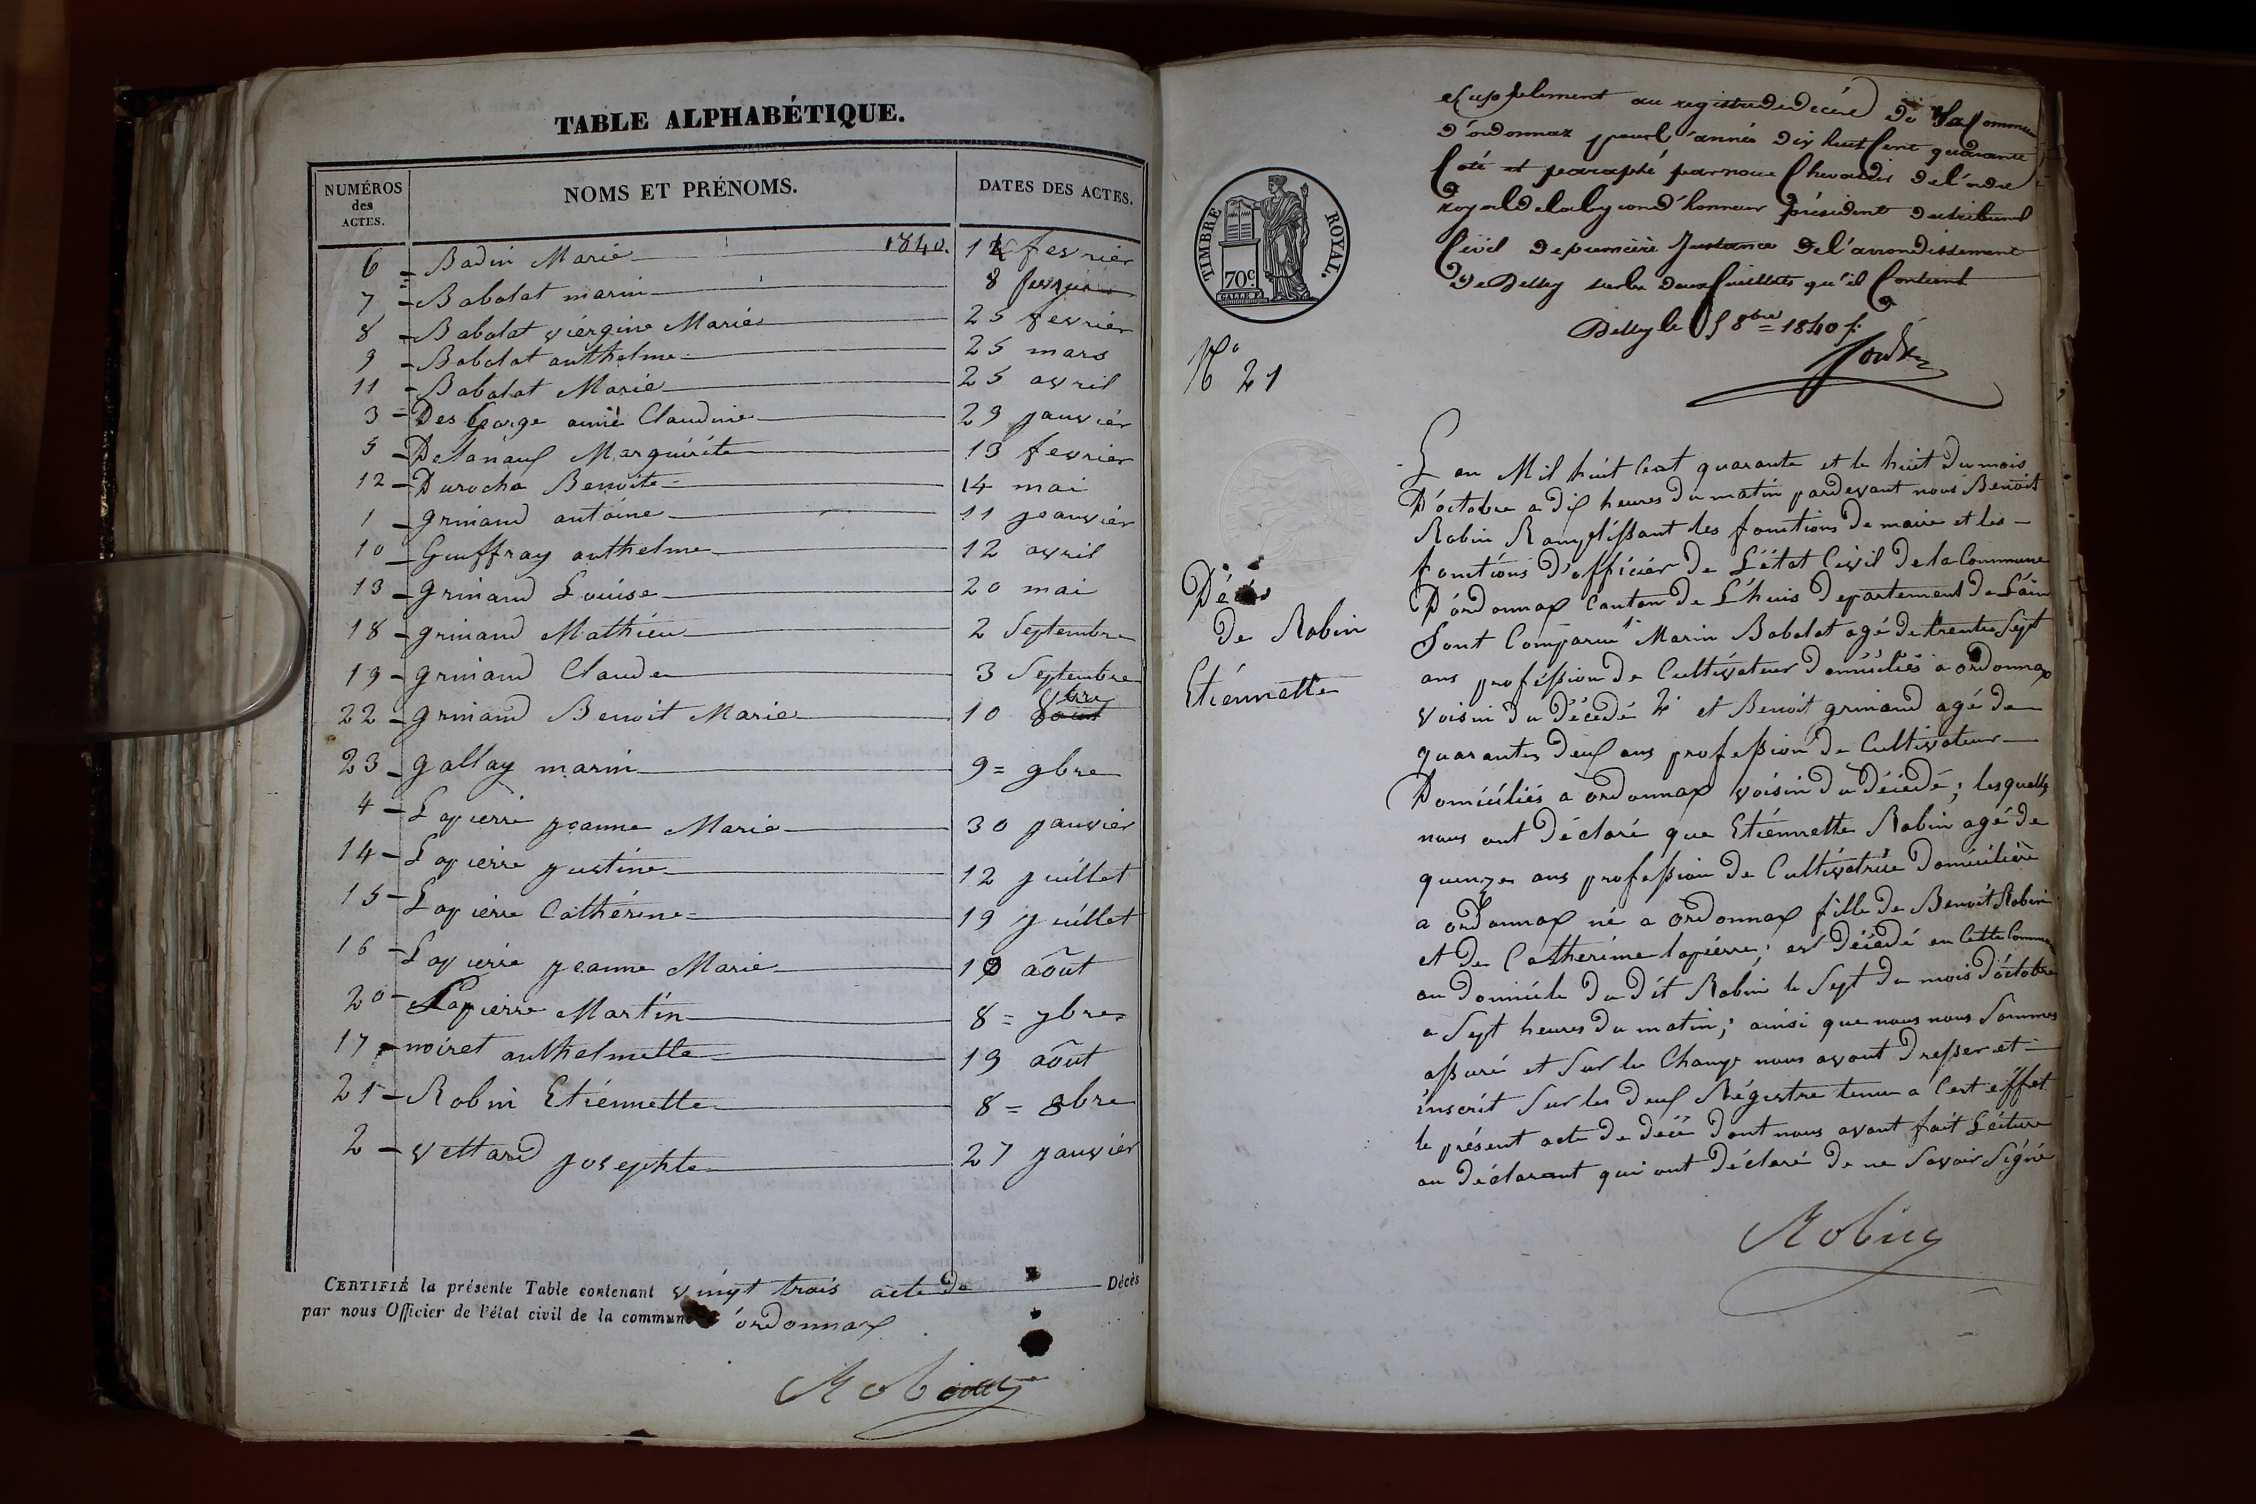 TABLE ALPHABÉTIQUE.
NUMÉROS des ACTES. NOMS ET PRÉNOMS. DATES DES ACTES.
6 Badin Marie 1840. 12 fevrier
7 Babolat marin 8 fevrier
8 Babolat viergine Marie 25 fevrier
9 Babolat anthelme 25 mars
11 Babolat Marie 25 avril
3 Des George aimé Claudine 29 janvier
5 Marguirite 13 fevrier
12 Durocha Benoite 14 mai
1 grinand antoine 11 jeanvier
10 Guiffray anthelme 12 avril
13 grinand Louise 20 mai
18 grinand Mathieu 2 Septembre
19 grinand Claude 3 Septembre
22 grinand Benoit Marie 10 8bre
23 gallay marin 9 = 9bre
4 Lapierre jeanne Marie 30 janvier
14 Lapierre justine 12 juillet
15 Lapierre Cathérine 19 juillet
16 Lapierre jeanne Marie 10 aôut
20 Lapierre Martin 8 = 7bre
17 noiret anthelmette 19 aôut
21 Robin Etiénnette 8 = 8bre
2 vettard josephte 27 janvier
CERTIFIÉ la présente Table contenant vingt trois acte de Décès
par nous Officier de l'état civil de la commune d'ordonnax
Robin
TIMBRE ROYAL.
70c
supplement au registre de décès de la Commune
d'ordonnax pour l'année dix huit Cent quarante
Coté et paraphé par nous Chevalier de l'ordre
royal de la legion d'honneur président du tribunal
Civil de premiere Instance de l'arrondissement
de Belley sur les deux feuillets qu'il Contient
Belley le 5 8bre 1840
N° 21
Décés
de Robin
Etiénnette
L'an Mil huit Cent quarante et le huit du mois
D'octobre a dix heures du matin pardevant nous Benoit
Robin Ramplissant les fonctions de maire et les
fonctions d'officiér de L'état Civil de la Commune
D'ordonnax Canton de L'huis departement de L'ain
Sont Comparu 1° Marin Babolat agé de trente Sept
ans proféssion de Cultivateur domiciliés a ordonnax
voisin du décedé 2° et Benoit grinand agé de
quarantes deux ans profession de Cultivateur
Domiciliés a ordonnax voisin du Décedé; lesquells
nous ont déclaré que Etiénnette Robin agé de
quenze ans profession de Cultivatrice Domiciliére
a ordonnax né a ordonnax fille de Benoit Robin
et de Catherine lapierre; est décédé en Cette Commune
au domicile du dit Robin le Sept du mois d'octobre
a Sept heures du matin; ainsi que nous nous Sommes
assuré et Sur le Champ nous avont dresser et
inscrit Sur les deux Régistre tenu a Cest éffet
le présent acte de décé dont nous avont fait Lécture
au déclarant qui ont déclaré de ne Savoir Signé
Robin